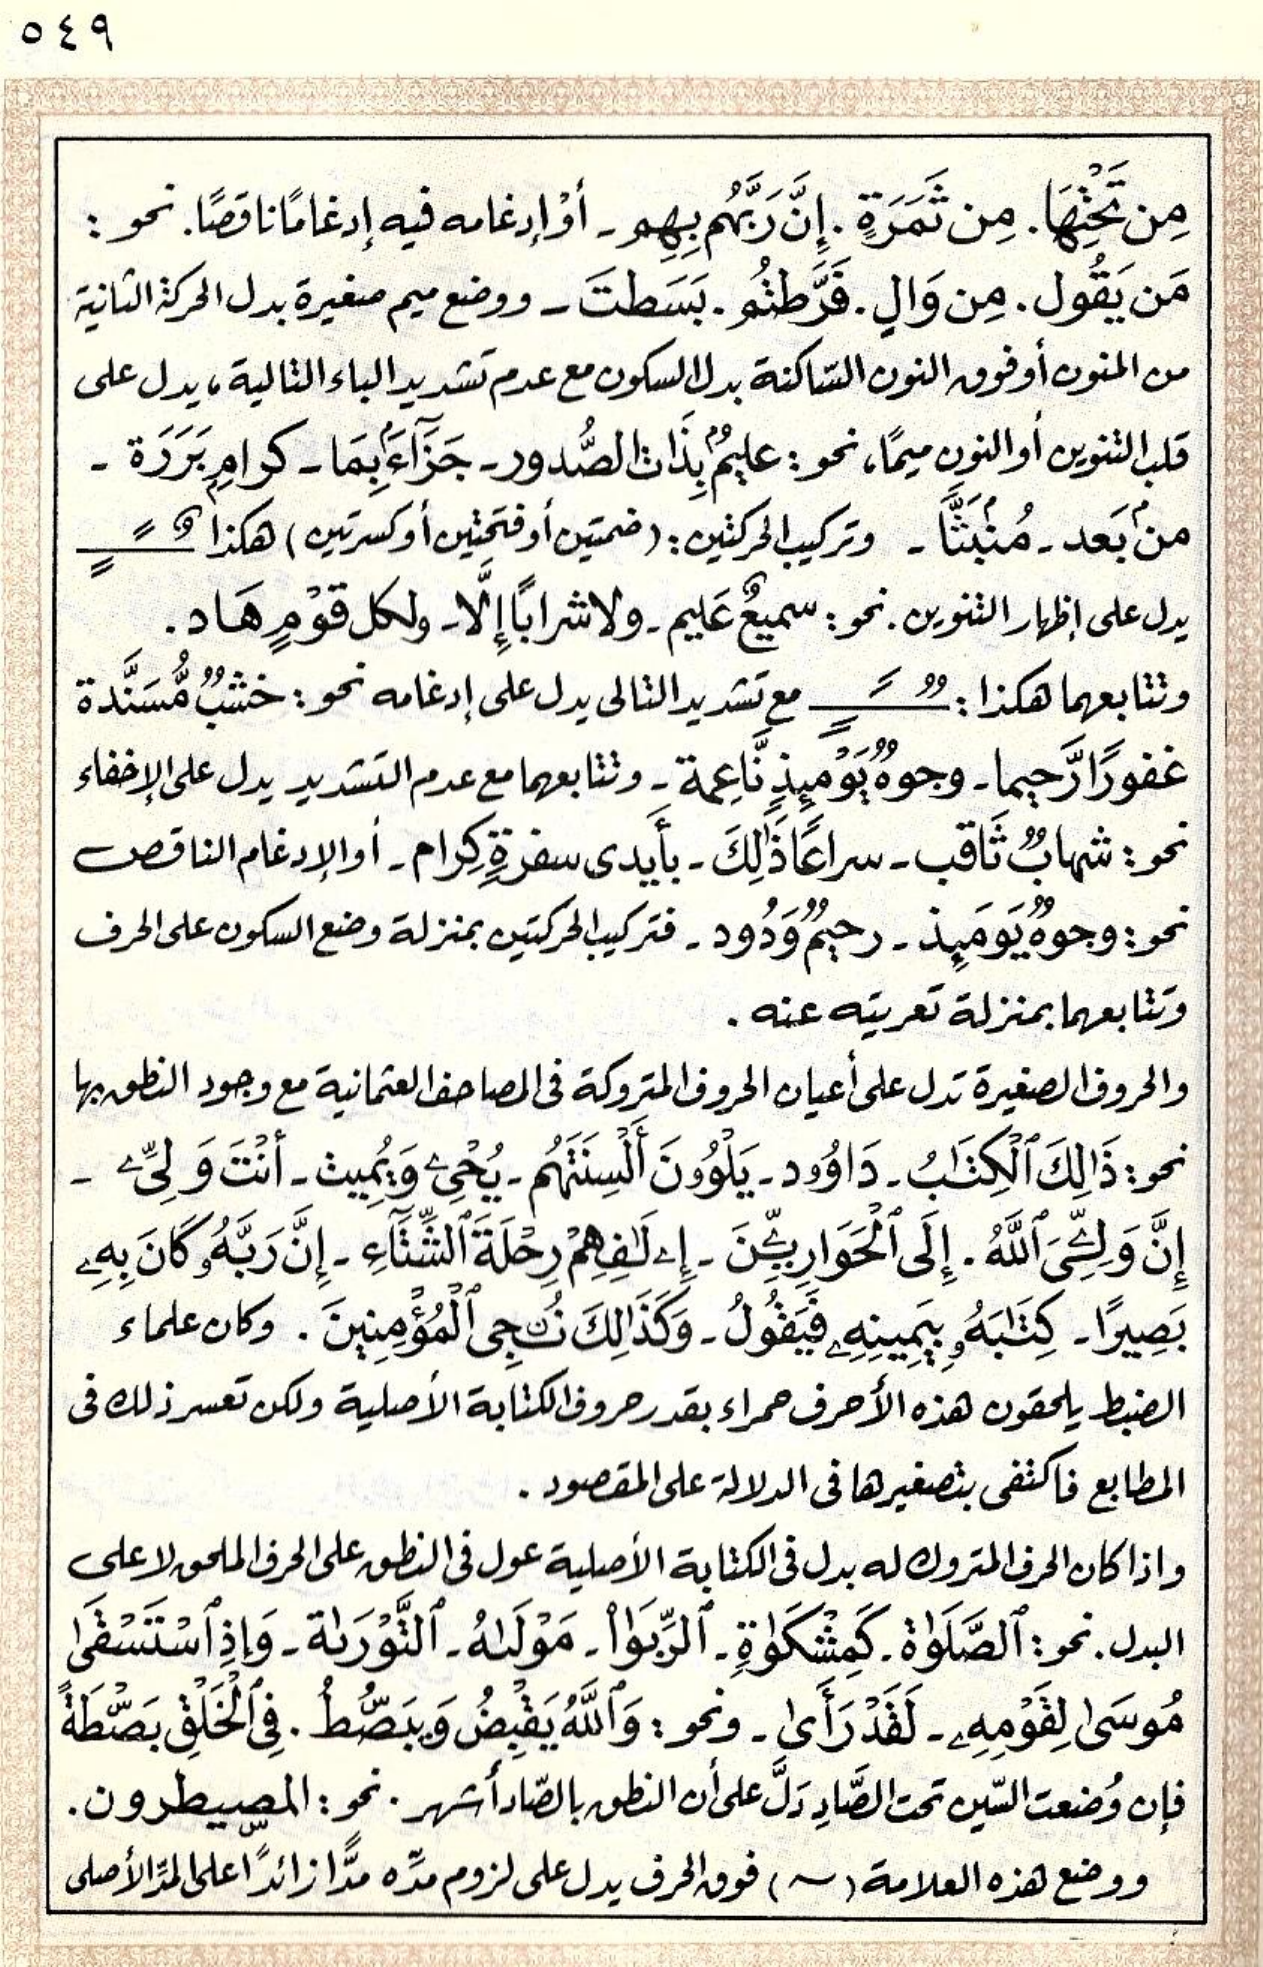 ٥٤٩
مِن تَحْتِهَا. مِن ثَمَرَةٍ. إِنَّ رَبَّهُم بِهِم - أوْ إدغامه فيه إدغامًا ناقصًا. نحو :
مَن يَقُول. مِن وَالٍ. فَرَّطتُم. بَسَطتَ - ووضع ميم صغيرة بدل الحركة الثانية
من المنون أو فوق النون السّاكنة بدل السكون مع عدم تشديد الباء التالية، يدل على
قلب التنوين أو النون ميمًا، نحو : عليمُۢ بِذَات الصُّدور - جَزَآءَۢ بِمَا - كرامِۭ بَرَرَة -
منۢ بَعد - مُنۢبَثًّا - وتركيب الحركتين : (ضمتين أو فتحتين أو كسرتين) هكذا ـٌ ـً ـٍ
يدل على إظهار التنوين. نحو : سميعٌ عَليم - ولا شرابًا إِلَّا - ولكل قَوْمٍ هَاد.
وتتابعهما هكذا : ـٌ ـً ـٍ مع تشديد التالى يدل على إدغامه نحو : خشبٌ مُّسَنَّدة
غفورًا رَّحيما - وجوهٌ يَوْمَئِذٍ نَّاعِمة - وتتابعهما مع عدم التشديد يدل على الإخفاء
نحو : شهابٌ ثَاقب - سراعًا ذَٰلِكَ - بأَيدى سفرةٍ كِرام - أو الإدغام الناقص
نحو : وجوهٌ يَوَمَئِذ - رحيمٌ وَدُود - فتركيب الحركتين بمنزلة وضع السكون على الحرف
وتتابعهما بمنزلة تعريته عنه.
والحروف الصغيرة تدل على أعيان الحروف المتروكة فى المصاحف العثمانية مع وجود النطق بها
نحو : ذَٰلِكَ ٱلْكِتَٰبُ - دَاوُۥد - يَلْوُۥنَ أَلْسِنَتَهُم - يُحْىِۦ وَيُمِيت - أَنْتَ وَلِىِّۦ -
إِنَّ وَلِـِّۧىَ ٱللَّهُ. إِلَى ٱلْحَوَارِيِّـۧنَ - إِۦلَٰفِهِمْ رِحْلَةَ ٱلشِّتَآءِ - إِنَّ رَبَّهُۥ كَانَ بِهِۦ
بَصِيرًا - كِتَٰبَهُۥ بِيَمِينِهِۦ فَيَقُولُ - وَكَذَٰلِكَ نُـۨجِى ٱلْمُؤْمِنِينَ. وكان علماء
الضبط يلحقون هذه الأحرف حمراء بقدر حروف الكتابة الأصلية ولكن تعسر ذلك فى
المطابع فاكتفى بتصغيرها فى الدلالة على المقصود.
واذا كان الحرف المتروك له بدل فى الكتابة الأصلية عول فى النطق على الحرف الملحق لا على
البدل. نحو : ٱلصَّلَوٰة - كَمِشْكَوٰةٍ - ٱلرِّبَوٰا۟ - مَوْلَىٰهُ - ٱلتَّوْرَىٰة - وَإِذِ ٱسْتَسْقَىٰ
مُوسَىٰ لِقَوْمِهِۦ - لَقَدْ رَأَىٰ - ونحو : وَٱللَّهُ يَقْبِضُ وَيَبْصُۜطُ. فِى ٱلْخَلْقِ بَصْۜطَةً
فإن وُضعت السّين تحت الصَّادِ دَلَّ على أن النطق بالصّاد أشهر. نحو : المصۣيطرون.
ووضع هذه العلامة (ـٓ) فوق الحرف يدل على لزوم مدّه مدًّا زائدًا على المدّ الأصلى